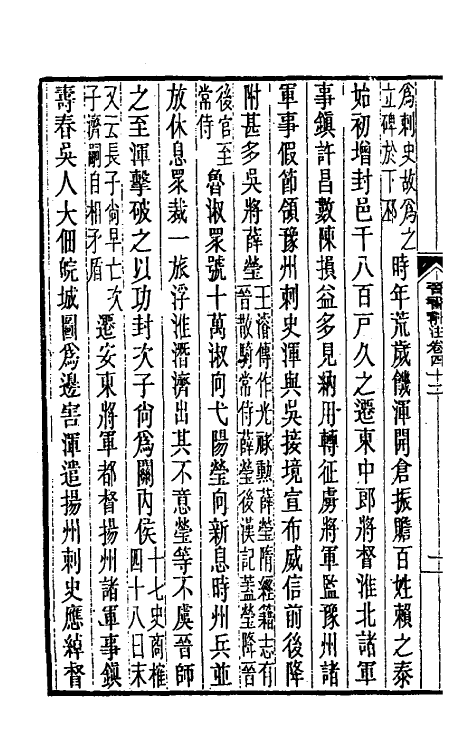 爲刺史故爲之
立碑於下邳
時年荒歲饑渾開倉振贍百姓賴之泰
始初增封邑千八百戶久之遷東中郎將督淮北諸軍
事鎮許昌數陳損益多見納用轉征虜將軍監豫州諸
軍事假節領豫州刺史渾與吳接境宣布威信前後降
附甚多吳將薛瑩
王濬傳作光祿勳薛瑩隋經籍志有
晉散騎常侍薛瑩後漢記蓋瑩降晉
後官至
常侍
魯淑眾號十萬淑向弋陽瑩向新息時州兵並
放休息眾裁一旅浮淮潛濟出其不意瑩等不虞晉師
之至渾擊破之以功封次子尚爲關內侯
十七史商榷
四十八日末
又云長子尚早亡次
子濟嗣自相矛盾
遷安東將軍都督揚州諸軍事鎮
壽春吳人大佃皖城圖爲邊害渾遣揚州刺史應綽督
晉書斠注卷四十二